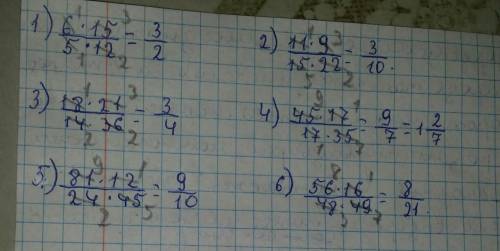 1) (6·15)/(5·12) = 3/2
2) (11·9)/(15·22) = 3/10.
3) (18·21)/(14·36) = 3/4
4) (45·17)/(17·35) = 9/7 = 1 2/7
5.) (81·12)/(24·45) = 9/10
6) (56·16)/(48·49) = 8/21.